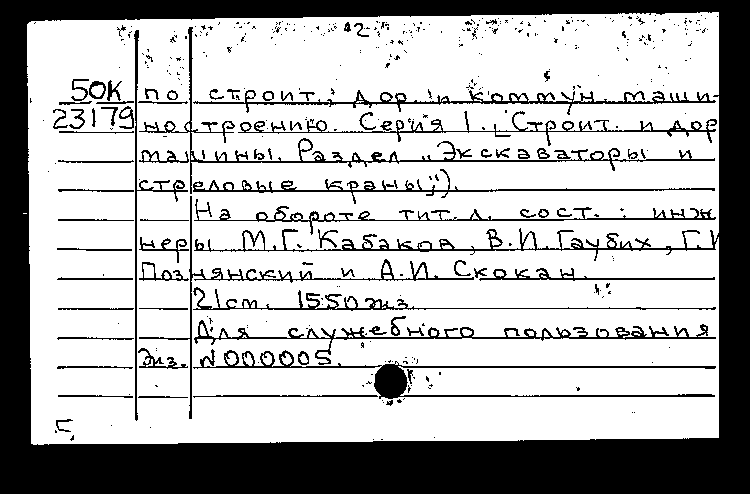 2
50К по строит., дор. и коммун. маши-
23179 ностроению. Серия 1. Строит. и дор
машины. Раздел „Экскаваторы и
стреловые краны").
На обороте тит. л. сост.: инже
неры М.Г. Кабаков, В.И. Гаубих, Г.И
Познянский и А.И. Скокан.
21 cm. 1550 экз.
Для служебного пользования
Экз. N000005.